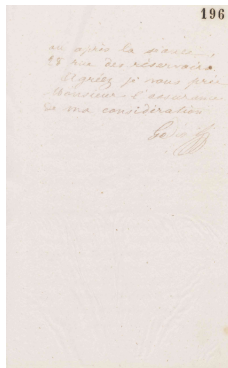 196
ou après la séance
28 rue des réservoirs
Agréez je vous prie
Monsieur l'assurance
de ma considération